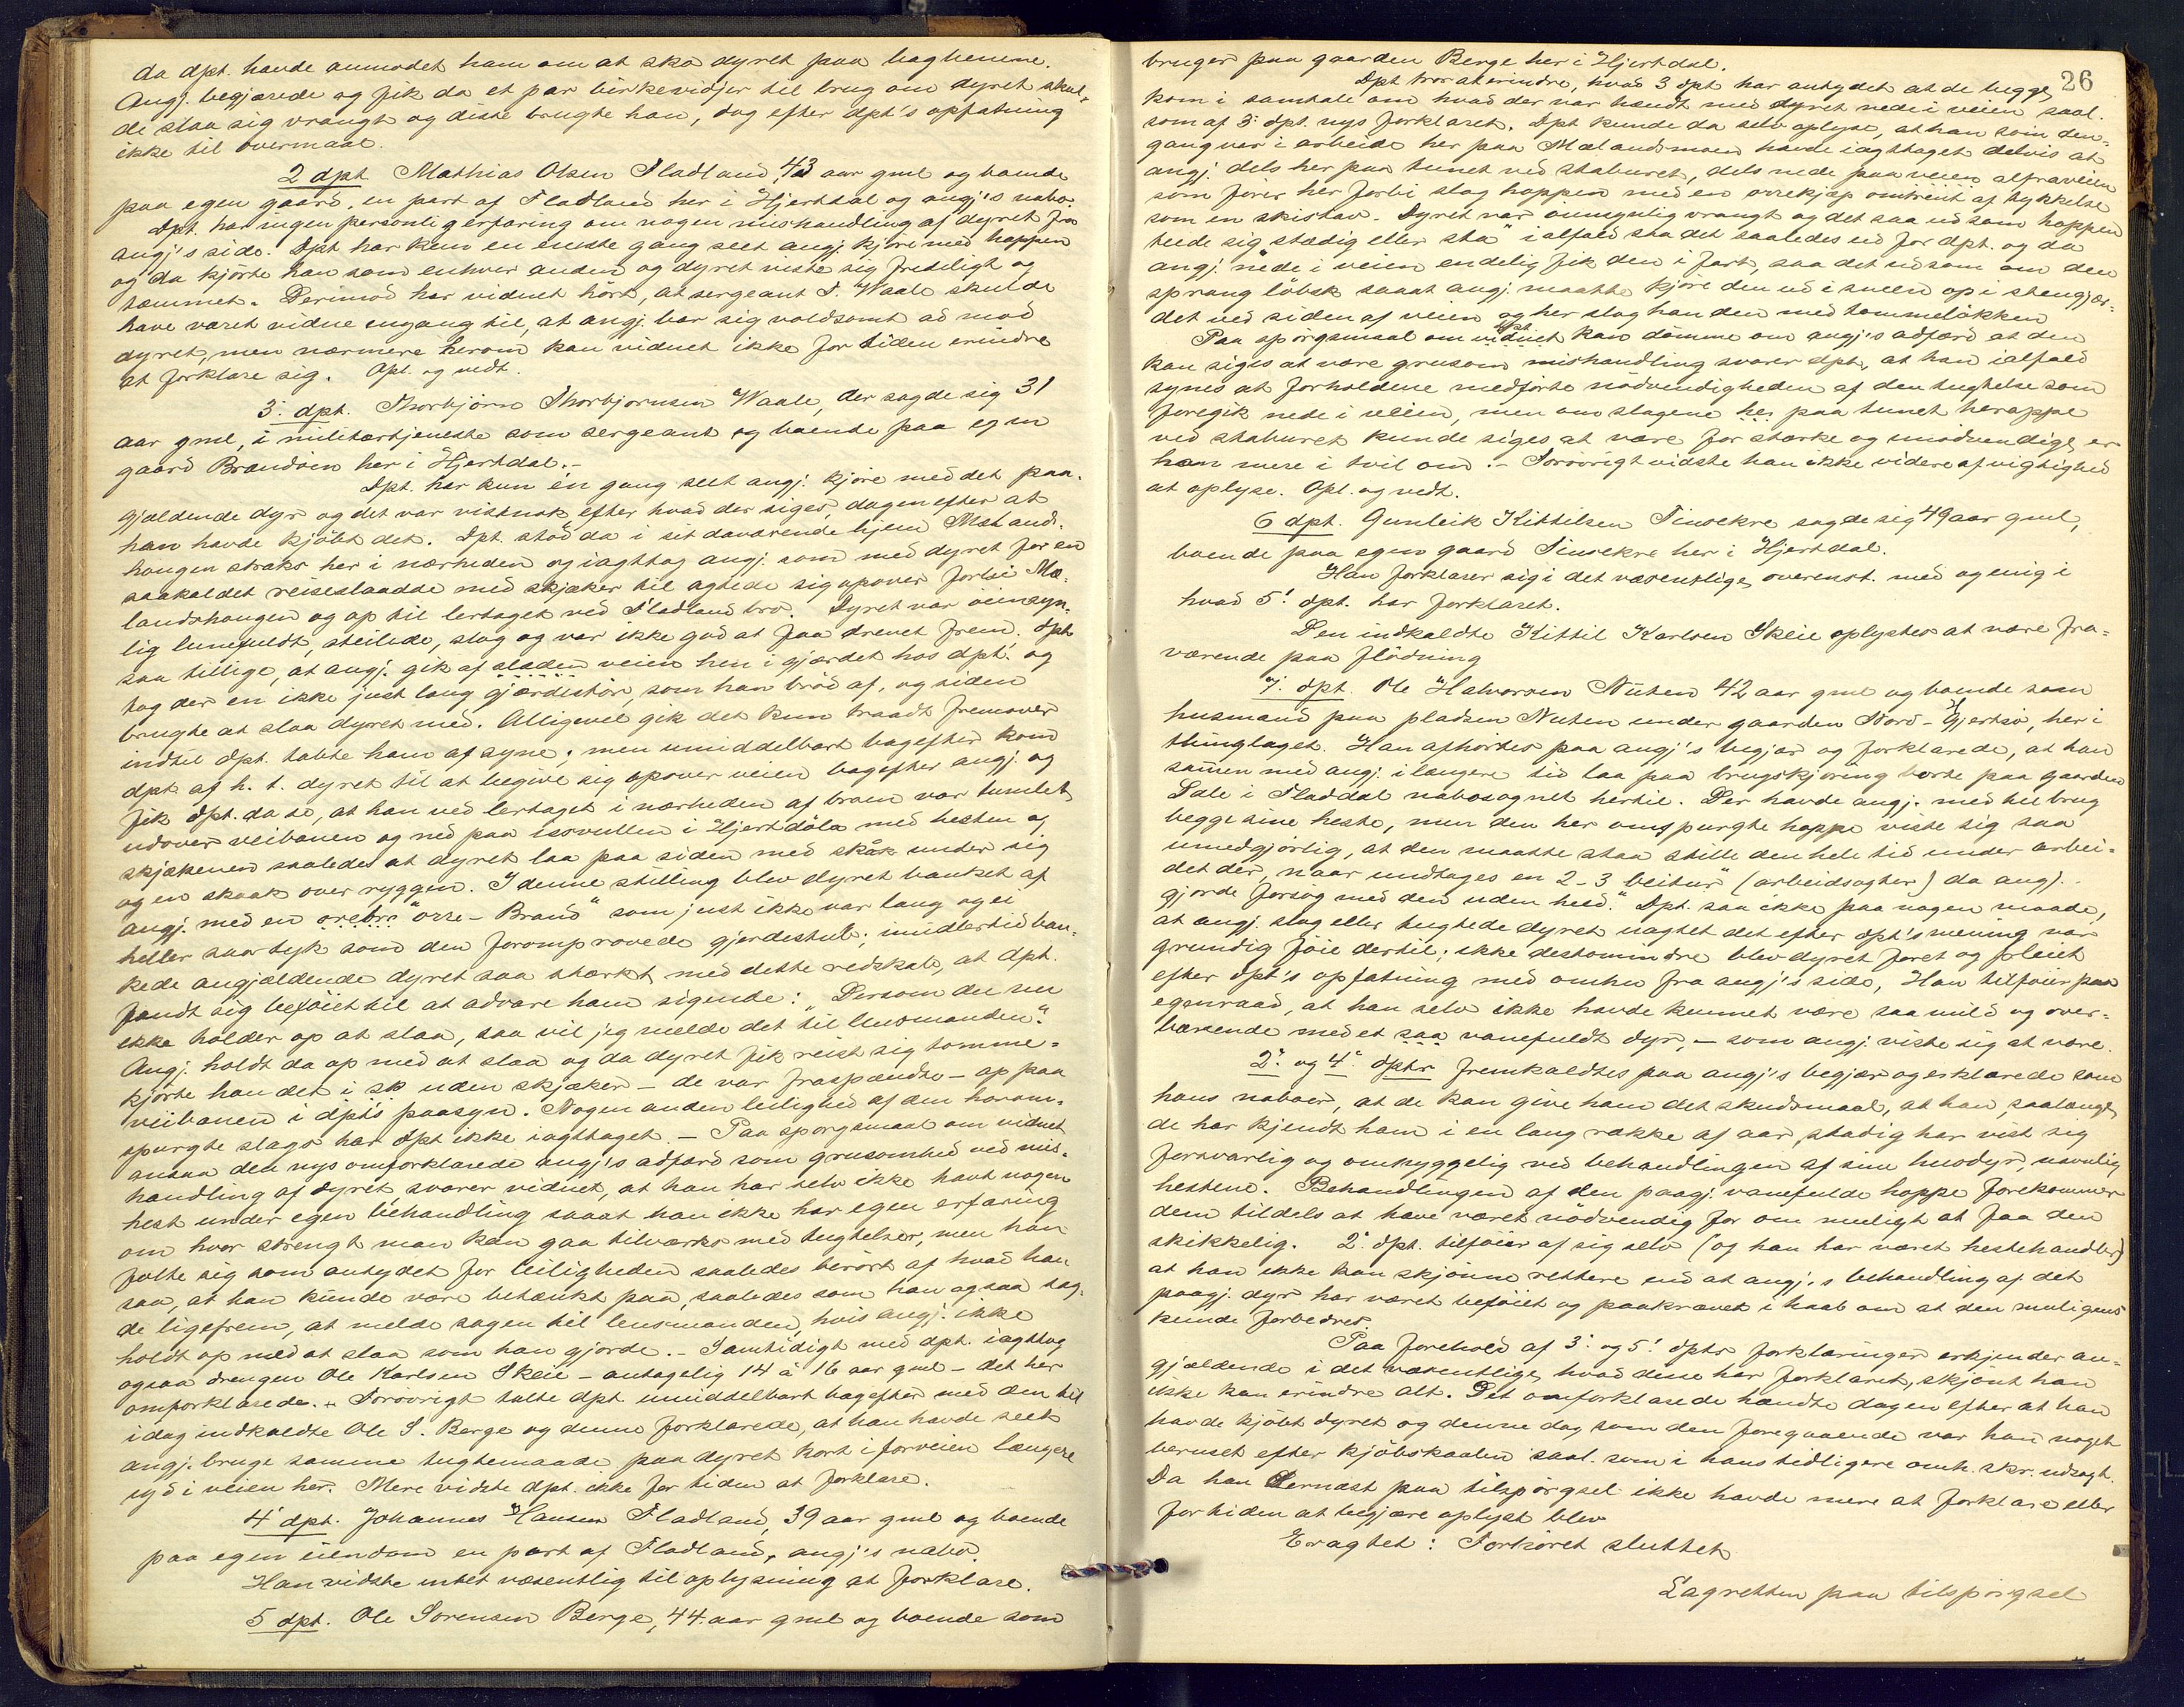 da dpt. havde anmodet ham om at sko dyret paa bagbenene.
Angj. begjærede og fik da et par birkevidjer til brug om dyret skul-
de slaa sig vrangt og diste brugte han, dog efter dpt's opfatning
ikke til overmaal.
2 dpt. Mathias Olsen Fladland, 43 aar gml og boende
paa egen gaard, en part af Fladland her i Hjertdal og angj's nabo.
Dpt. har ingen personlig erfaring om nogen mishandling af dyret fra
angj's side. Dpt har kun en eneste gang seet angj. kjøre med hoppen
og da kjørte han som enhver anden og dyret viste sig fredeligt og
tæmmet. Derimod har vidnet hört, at sergeant T. Waale skulde
have været vidne engang til, at angj. bar sig voldsomt ad mod
dyret, men nærmere herom kan vidnet ikke for tiden erindre
at forklare sig. Opl. og vedt.
3. dpt. Thorbjörn Thorbjørnsen Waale, der sagde sig 31
aar gml, i militærtjeneste som sergeant og boende paa egen
gaard Brændöen her i Hjertdal.-
Dpt. har kun én gang seet angj. kjøre med det paa-
gjældende dyr og det var vistnok efter hvad der siges, dagen efter at
han havde kjöbt det. Dpt. stod da i sit daværende hjem Mælands-
haugen straks her i nærheden og iagttog angj. som med dyret for en
saakaldet reiseslaadde med skjæker til agtede sig opover forbi Mæ-
landshaugen og op til lertaget ved Fladland bro. Dyret var öiensyn-
lig lunefuldt, steilede, slog og var ikke god at faa drevet frem. Dpt
saa tillige, at angj. gik af slæden veien hen i gjærdet hos dpt. og
tog der en ikke just lang gjærdestör, som han bröd af, og siden
brugte at slaa dyret med. Alligevel gik det kun traadt fremover
indtil dpt. tabte ham af syne; men umiddelbart bagefter kom
dpt af h. t. dyret til at begive sig opover veien bagefter angj. og
fik dpt. da se, at han ved lertaget i nærheden af broen var tumlet
udover veibanen og ned paa isovullen i Hjertdöla med hesten og
skjækenen saaledes at dyret laa paa siden med skåk under sig
og en skaak over ryggen. I denne stilling blev dyret banket af
angj. med en orebr "orre-Brand" som just ikke var lang og ei
heller saa tyk som den foromprovede gjerdestub; imidlertid ban-
kede angjældende dyret saa stærkt med dette redskab, at dpt.
fandt sig beföiet til at advare ham sigende: "Dersom du nu
ikke holder op at slaa, saa vil jeg melde det til lensmanden".
Angj. holdt da op med at slaa og da dyret fik reist sig tomme-
kjørte han det i sk uden skjæker - de var fraspændte - op paa
veibanen i dpt's paasyn. Nogen anden leilighed af den herom-
spurgte slags har dpt ikke iagttaget. - Paa spørgsmaal om vidnet
ansaa den nys omforklarede angj's adfærd som grusomhed ved mis-
handling af dyret, svarer vidnet, at han har selv ikke havt nogen
hest under egen behandling saaat han ikke har egen erfaring
om hvor strengt man kan gaa tilværks med tugtelser, men han
følte sig som antydet for leiligheden saaledes berørt af hvad han
saa, at han kunde være betænkt paa, saaledes som han ogsaa sag-
de ligefrem, at melde sagen til lensmanden, hvis angj. ikke
holdt op med at slaa som han gjorde. - Samtidigt med dpt. iagttog
ogsaa drengen Ole Karlsen Skeie - antagelig 14 à 16 aar gml - det her
omforklarede. - Forøvrigt talte dpt umiddelbart bagefter med den til
idag indkaldte Ole S. Berge og denne forklarede, at han havde seet
angj. bruge samme tugtemaade paa dyret kort i forveien længere
syd i veien her. Mere vidste dpt. ikke for tiden at forklare.
4 dpt. Johannes Hansen Fladland, 39 aar gml og boende
paa egen eiendom en part af Fladland, angj's nabo.
Han vidste intet væsentlig til oplysning at forklare.
5 dpt. Ole Sørensen Berge, 44. aar gml og boende som
26
bruger paa gaarden Berge her i Hjertdal.
Dpt tror at erindre, hvad 3 dpt har antydet at de begge,
kom i samtale om hvad der var hændt med dyret nede i veien saal.
som af 3. dpt. nys forklaret. Dpt kunde da selv oplyse, at han som den-
gang var i arbeide her paa Mælandsmoen havde iagttaget delvis at
angj. dels her paa tunet ved staburet, dels nede paa veien alfraveien
som fører her forbi slog hoppen med en orrekjæp omtrent af tykkelse
som en skistav. Dyret var öiensynlig vrangt og det saa ud som hoppen
teede sig stædig eller "sta" ialfald saa det saaledes ud for dpt. og da
angj. nede i veien endelig fik den i fart, saa det ud som om den
sprang löbsk saaat angj. maatte kjøre den ud i sneen op i stengjær-
det ved siden af veien og her slog han den med tommelökken
Paa spörgsmaal om vidnet dpt. kan dömme om angj's adfærd at den
kan siges at være grusom mishandling svarer dpt, at han ialfald
synes at forholdene medförte nödvendigheden af den tugtelse som
foregik nede i veien, men om slagene her paa tunet heroppe
ved staburet kunde siges at være for stærke og unödvendige, er
han mere i tvil om. - Forövrigt vidste han ikke videre af vigtighed
at oplyse. Opl. og vedt.
6 dpt. Gunleik Kittilsen Tinsekre sagde sig 49 aar gml,
boende paa egen gaard Tinsekre her i Hjertdal.
Han forklarer sig i det væsentlige, overenst. med og enig i
hvad 5! dpt. har forklaret.
Den indkaldte Kittil Karlsen Skeie oplystes at være fra-
værende paa flödning
7. dpt. Ole Halvorsen Nuten 42 aar gml og boende som
husmand paa pladsen Nuten under gaarden Nord-Hjertsø, her i
thinglaget. Han afhörtes paa angj's begjær og forklarede, at han
sammen med angj. i længere tid laa paa brugskjöring borte paa gaarden
Dale i Fladdal nabosognet hertil. Der havde angj. med til brug
begge sine heste, men den her omspurgte hoppe viste sig saa
umedgjörlig, at den maatte staa stille den hele tid under arbei-
det der, naar undtages en 2-3 "beitur" (arbeidsøgter) da angj.
gjorde forsög med den uden held." Dpt. saa ikke paa nogen maade,
at angj. slog eller tugtede dyret uagtet det efter dpt's mening var
grundig föie dertil; ikke destomindre blev dyret foret og pleiet
efter dpt's opfatning med omhu fra angj's side, Han tilföier paa
egenraad, at han selv ikke havde kunnet være saa mild og over-
bærende med et saa vanefuldt dyr, - som angj. viste sig at være.
2. og 4. dptr fremkaldtes paa angj's begjær og erklærede som
hans naboer, at de kan give ham det skudsmaal, at han, saalænge
de har kjendt ham i en lang række af aar, stadig har vist sig
forsvarlig og omhyggelig ved behandlingen af sine husdyr, navnlig
hestene. Behandlingen af den paagj. vanefulde hoppe forekommer
dem tildels at have været nödvendig for om muligt at faa den
skikkelig. 2. dpt. tilföier af sig selv (og han har været hestehandler)
at han ikke kan skjönne rettere end at angj.s behandling af det
paagj. dyr har været beföiet og paakrævet i haab om at den muligens
kunde forbedres.
Paa forehold af 3. og 5! dpts forklaringer erkjender an-
gjældende i det væsentlige, hvad disse har forklaret, skjönt han
ikke kan erindre alt. Det omforklarede hændte dagen efter at han
havde kjöbt dyret og denne dag som den foregaaende var han noget
beruset efter kjöbskaalen saal. som i hans tidligere omh. skr. udsagt.
Da han dernæst paa tilspörgsel ikke havde mere at forklare eller
for tiden at begjære oplyst blev
Eragtet: Forhöret sluttet
Lagretten paa tilspörgsel